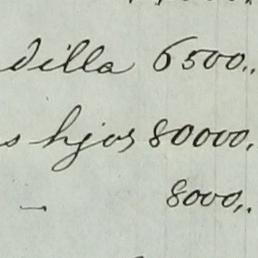 dilla 6500,,
s hjos 80000,
— 8000,,